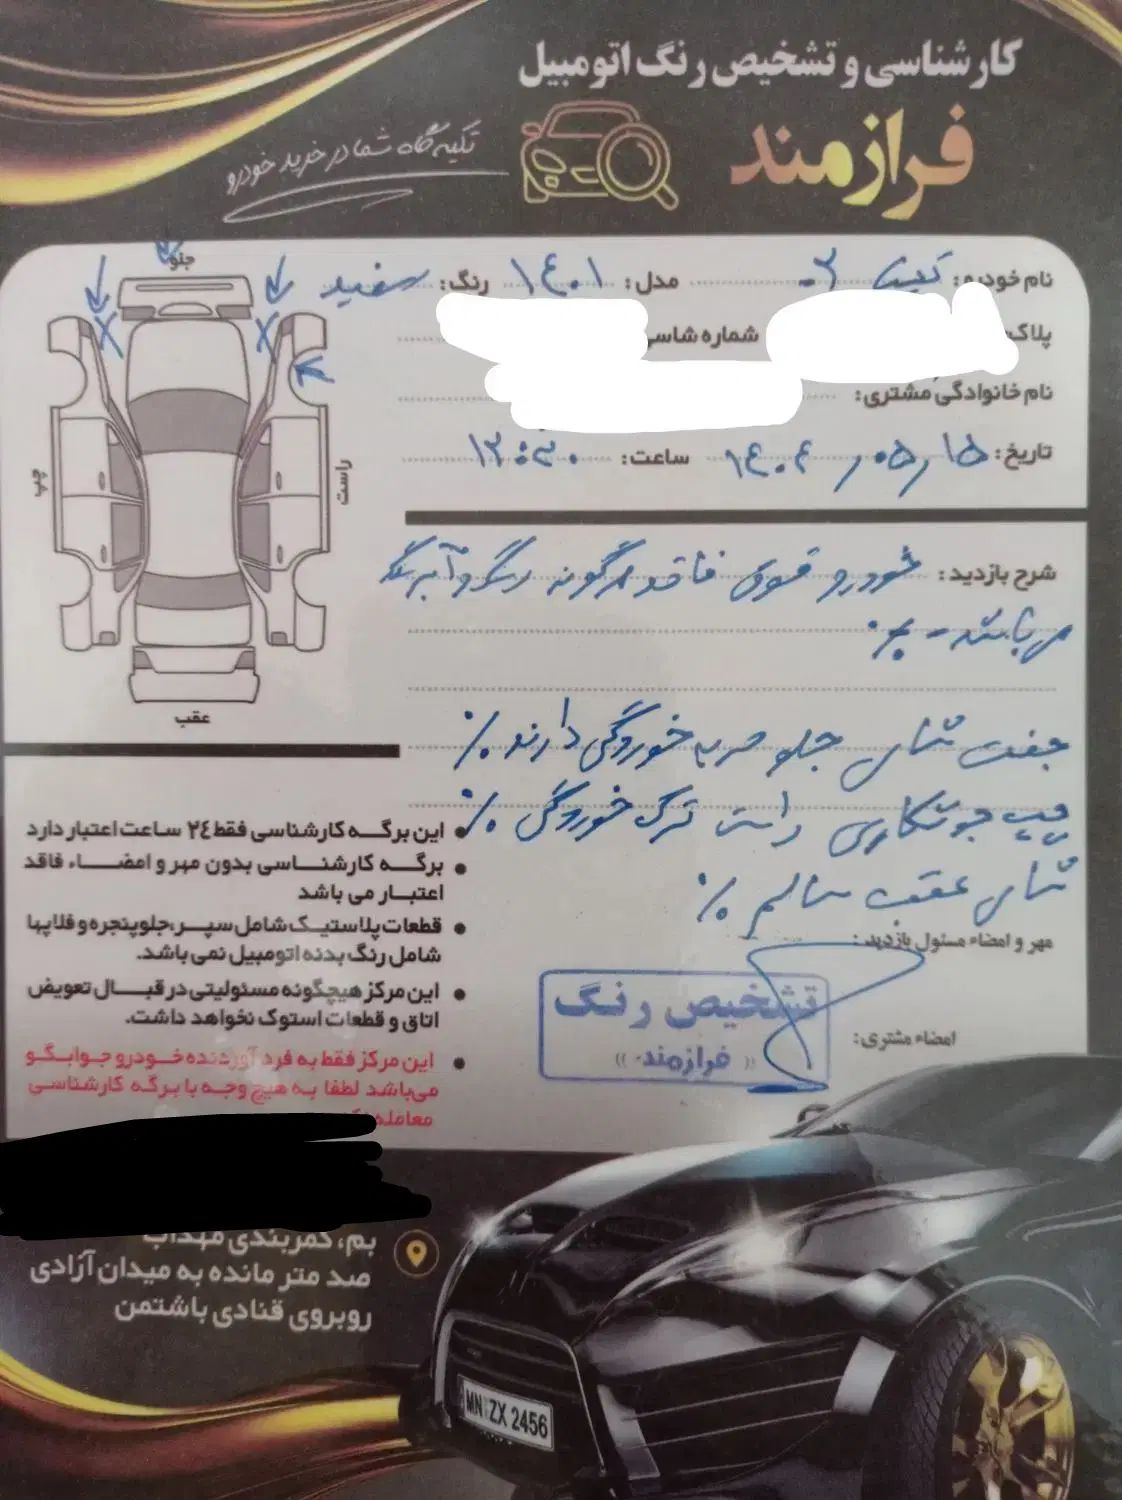 کارشناسی و تشخیص رنگ اتومبیل
فرازمند
تکیه گاه شما در خرید خودرو
نام خودرو: مدل: ۱۴۰۱ رنگ: سفید
پلاک شماره شاسی
نام خانوادگی مشتری:
تاریخ: ۱۴۰۴/۰۵/۱۵ ساعت: ۱۲:۳۰
جلو
چپ
راست
عقب
شرح بازدید: خودرو فوق فاقد هرگونه رنگ و آبرنگ
می باشد
جفت شاسی جلو ضربه خوردگی دارند ./
پیچ جوشکاری راست ترک خوردگی ./
شاسی عقب سالم ./
مهر و امضاء مسئول بازدید:
تشخیص رنگ
(( فرازمند ))
امضاء مشتری:
• این برگه کارشناسی فقط ۲۴ ساعت اعتبار دارد
• برگه کارشناسی بدون مهر و امضاء فاقد
اعتبار می باشد
• قطعات پلاستیک شامل سپر، جلوپنجره و فلاپها
شامل رنگ بدنه اتومبیل نمی باشد.
• این مرکز هیچگونه مسئولیتی در قبال تعویض
اتاق و قطعات استوک نخواهد داشت.
• این مرکز فقط به فرد آورنده خودرو جوابگو
می باشد لطفا به هیچ وجه با برگه کارشناسی
معامله
بم، کمربندی مهداب
صد متر مانده به میدان آزادی
روبروی قنادی باشتمن
MN ZX 2456